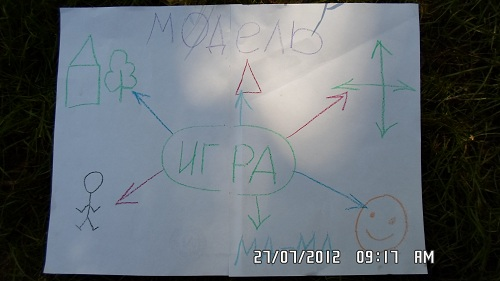 МОДЕЛЬ
ИГРА
МА-МА
27/07/2012 09:17 AM